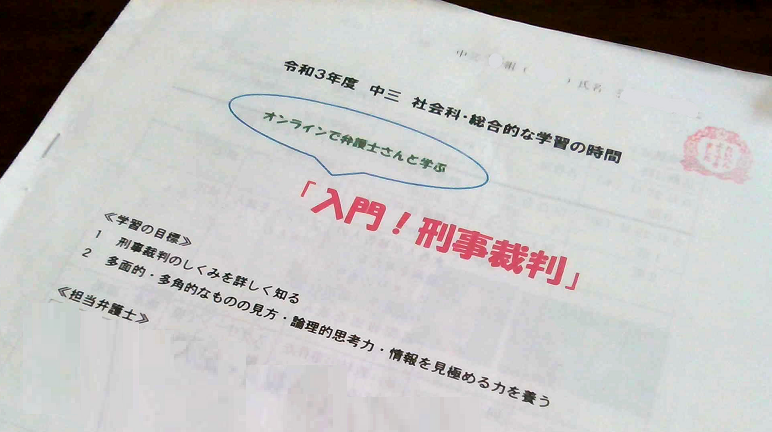 令和3年度 中三 社会科・総合的な学習の時間
オンラインで弁護士さんと学ぶ
「入門！刑事裁判」
≪学習の目標≫
1 刑事裁判のしくみを詳しく知る
2 多面的・多角的なものの見方・論理的思考力・情報を見極める力を養う
≪担当弁護士≫